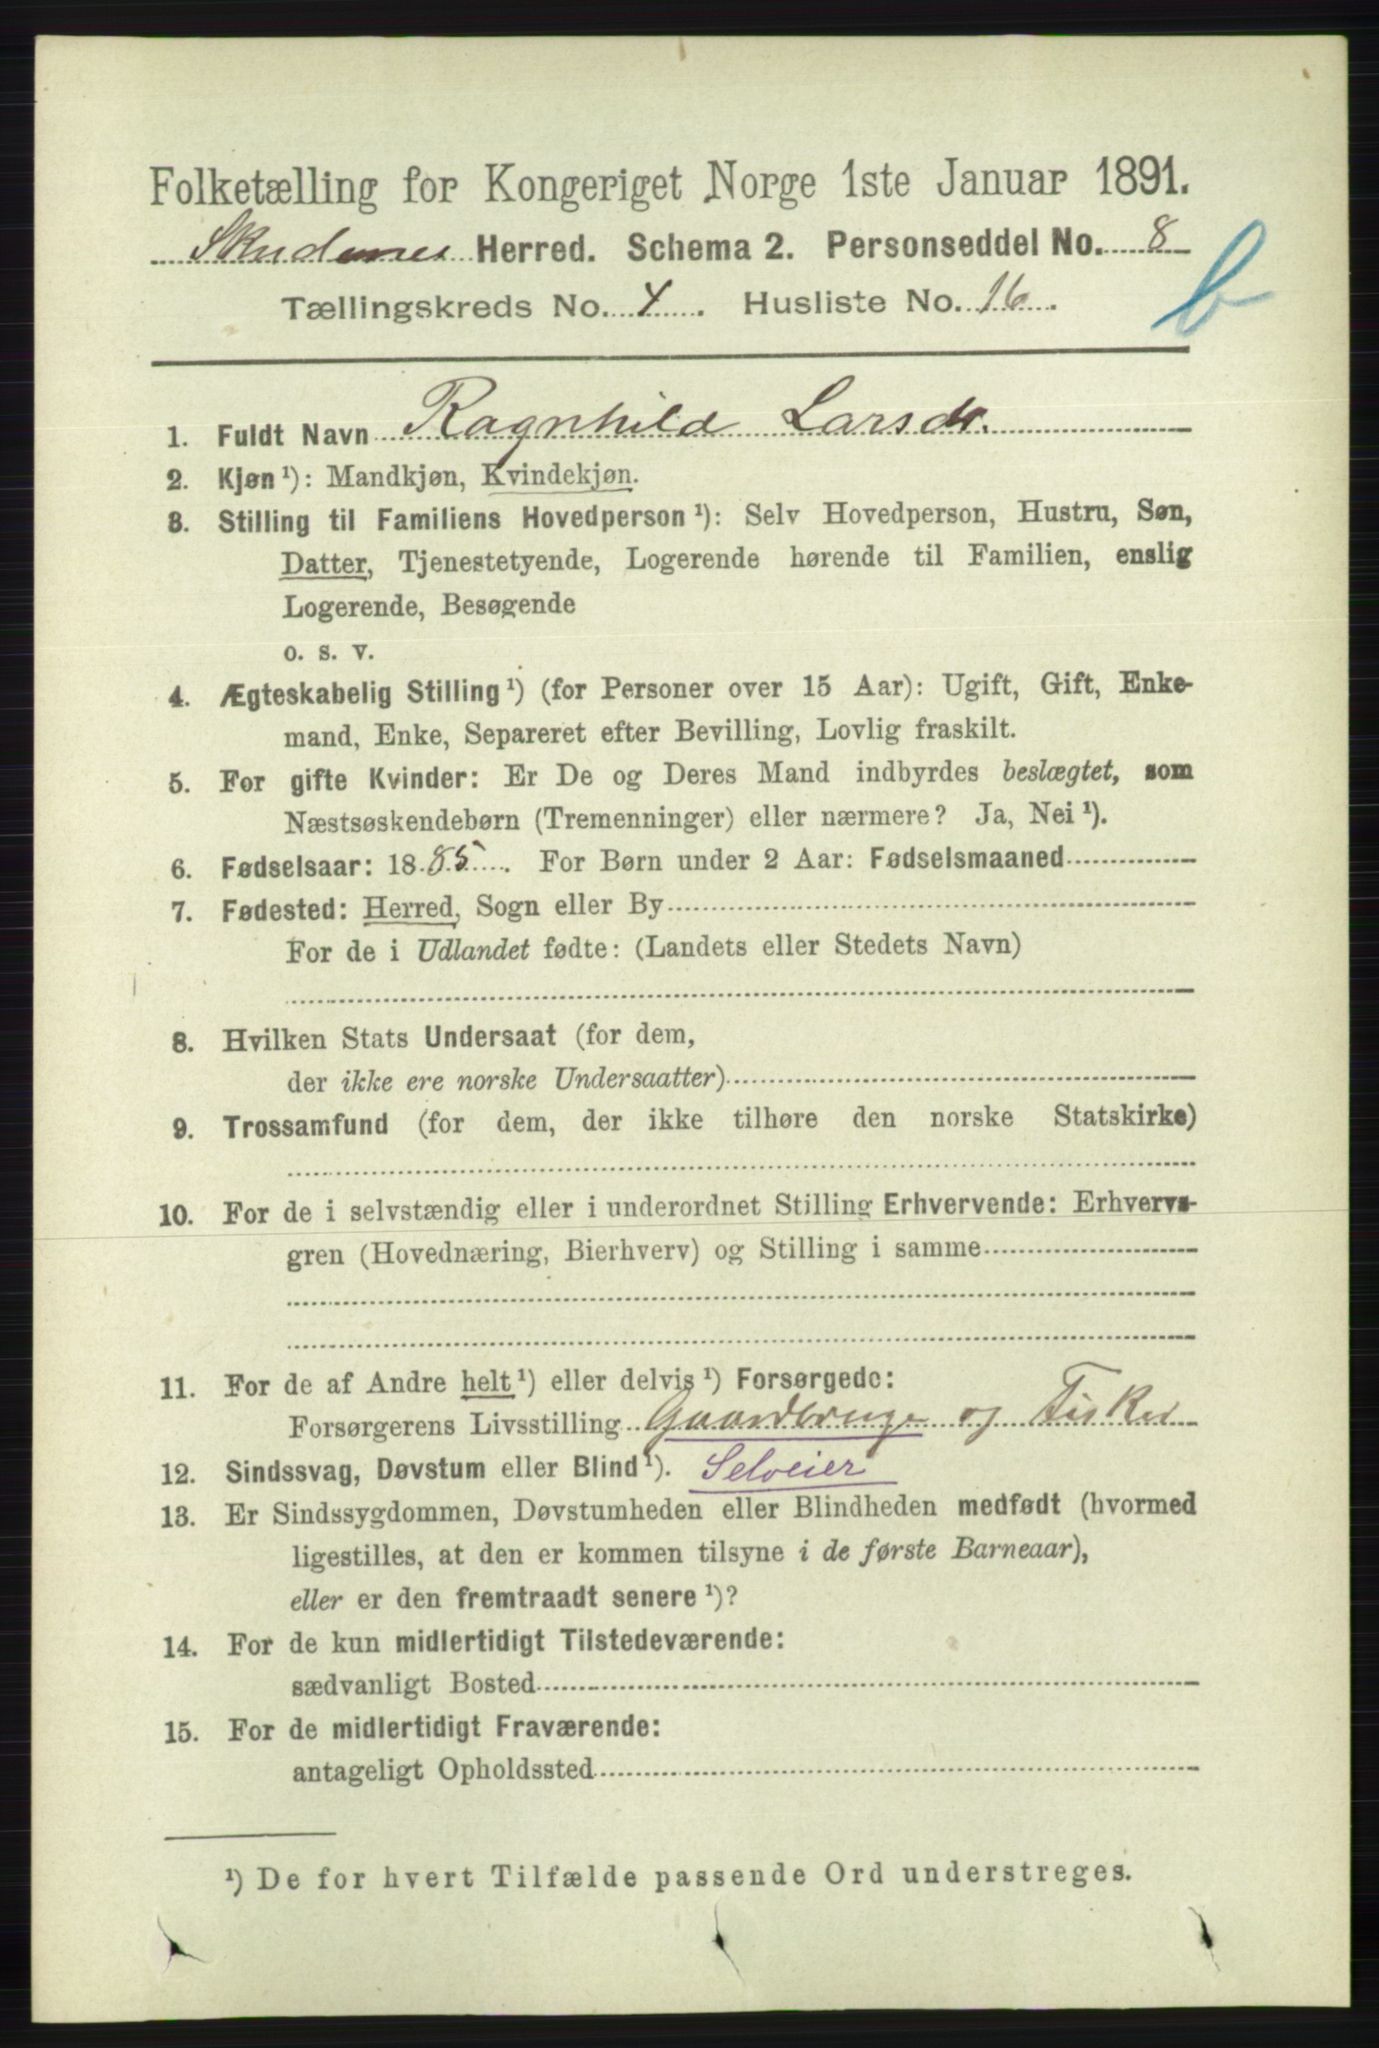 Folketælling for Kongeriget Norge 1ste Januar 1891.
Skudenes Herred. Schema 2. Personseddel No. 8
Tællingskreds No. 4. Husliste No. 16.
b
1. Fuldt Navn Ragnhild Larsdr.
2. Kjøn ¹): Mandkjøn, Kvindekjøn.
3. Stilling til Familiens Hovedperson ¹): Selv Hovedperson, Hustru, Søn,
Datter, Tjenestetyende, Logerende hørende til Familien, enslig
Logerende, Besøgende
o. s. v.
4. Ægteskabelig Stilling ¹) (for Personer over 15 Aar): Ugift, Gift, Enke-
mand, Enke, Separeret efter Bevilling, Lovlig fraskilt.
5. For gifte Kvinder: Er De og Deres Mand indbyrdes beslægtet, som
Næstsøskendebørn (Tremenninger) eller nærmere? Ja, Nei ¹).
6. Fødselsaar: 1885. For Børn under 2 Aar: Fødselsmaaned
7. Fødested: Herred, Sogn eller By
For de i Udlandet fødte: (Landets eller Stedets Navn)
8. Hvilken Stats Undersaat (for dem,
der ikke ere norske Undersaatter)
9. Trossamfund (for dem, der ikke tilhøre den norske Statskirke)
10. For de i selvstændig eller i underordnet Stilling Erhvervende: Erhvervs-
gren (Hovednæring, Bierhverv) og Stilling i samme
11. For de af Andre helt ¹) eller delvis ¹) Forsørgede:
Forsørgerens Livsstilling Gaardbruger og Fisker
12. Sindssvag, Døvstum eller Blind ¹). Selveier
13. Er Sindssygdommen, Døvstumheden eller Blindheden medfødt (hvormed
ligestilles, at den er kommen tilsyne i de første Barneaar),
eller er den fremtraadt senere ¹)?
14. For de kun midlertidigt Tilstedeværende:
sædvanligt Bosted
15. For de midlertidigt Fraværende:
antageligt Opholdssted
¹) De for hvert Tilfælde passende Ord understreges.